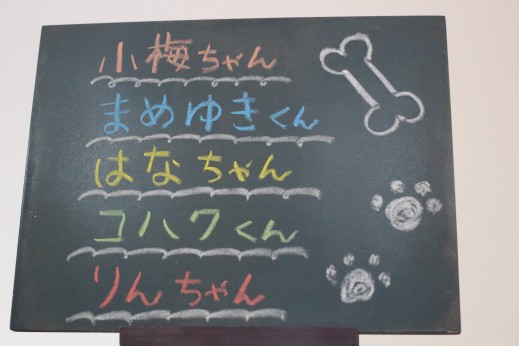 小梅ちゃん
まめゆきくん
はなちゃん
コハクくん
りんちゃん